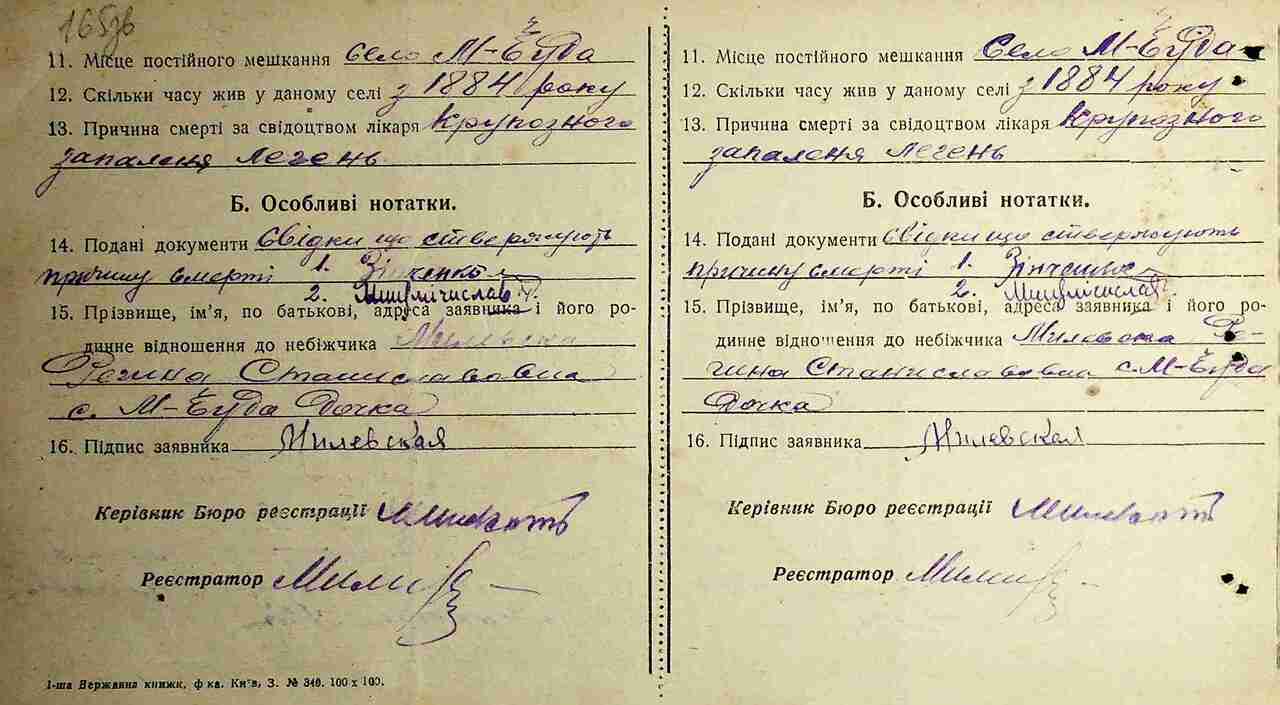 165зв
11. Місце постійного мешкання село М-Буда
12. Скільки часу жив у даному селі з 1884 року
13. Причина смерті за свідоцтвом лікаря Крупозного
запаленя легень
Б. Особливі нотатки.
14. Подані документи свідки що стверджують
причину смерті 1. Зінченко
2.
15. Прізвище, ім'я, по батькові, адреса заявника і його ро-
динне відношення до небіжчика Милевска
Регина Станиславовна
с. М-Буда дочка
16. Підпис заявника Милевская
Керівник Бюро реєстрації
Реєстратор
1-ша Державна книжк. ф-ка. Київ, З. № 340. 100 x 100.
11. Місце постійного мешкання Село М-Буда
12. Скільки часу жив у даному селі з 1884 року
13. Причина смерті за свідоцтвом лікаря Крупозного
запаленя легень
Б. Особливі нотатки.
14. Подані документи свідки що стверджують
причину смерті 1. Зінченко
2.
15. Прізвище, ім'я, по батькові, адреса заявника і його ро-
динне відношення до небіжчика Милевска Ре-
гина Станиславовна с. М-Буда
дочка
16. Підпис заявника Милевская
Керівник Бюро реєстрації
Реєстратор